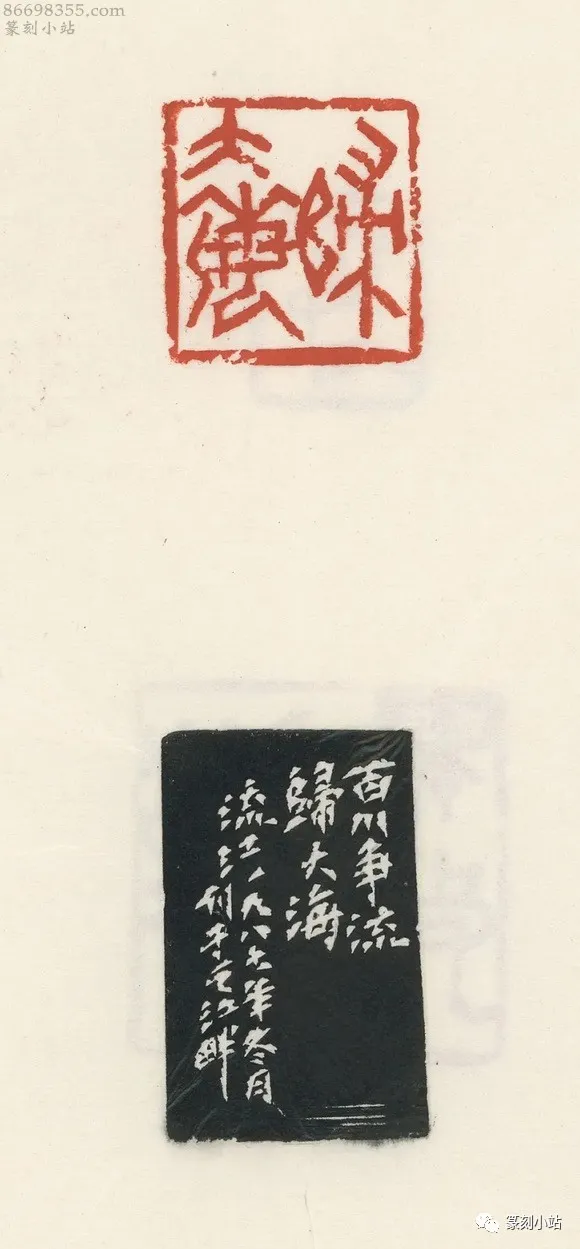 86698355.com
篆刻小站
歸
大
百川争流
歸大海
流江一九八六年冬月
刻于江畔
篆刻小站